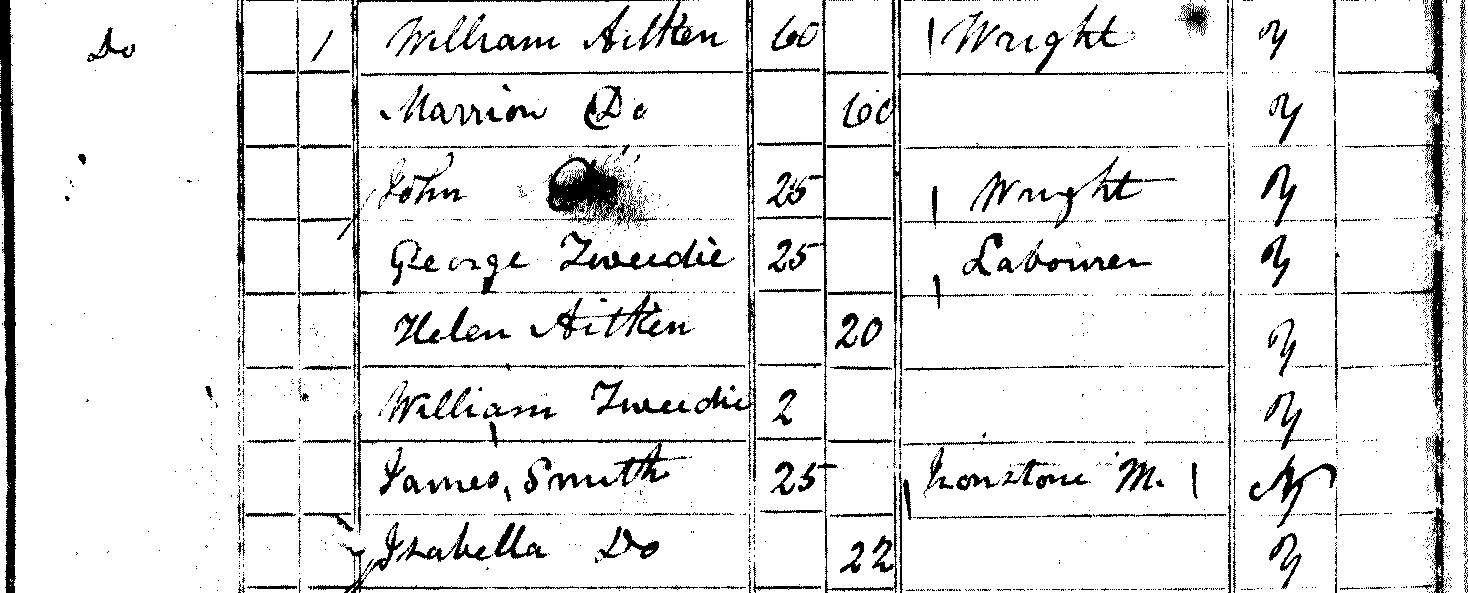 Do 1 William Aitken 60 Wright y
Marrion Do 60 y
John 25 Wright y
George Tweedie 25 Labourer y
Helen Aitken 20 y
William Tweedie 2 y
James Smith 25 Ironstone M. N
Isabella Do 22 y